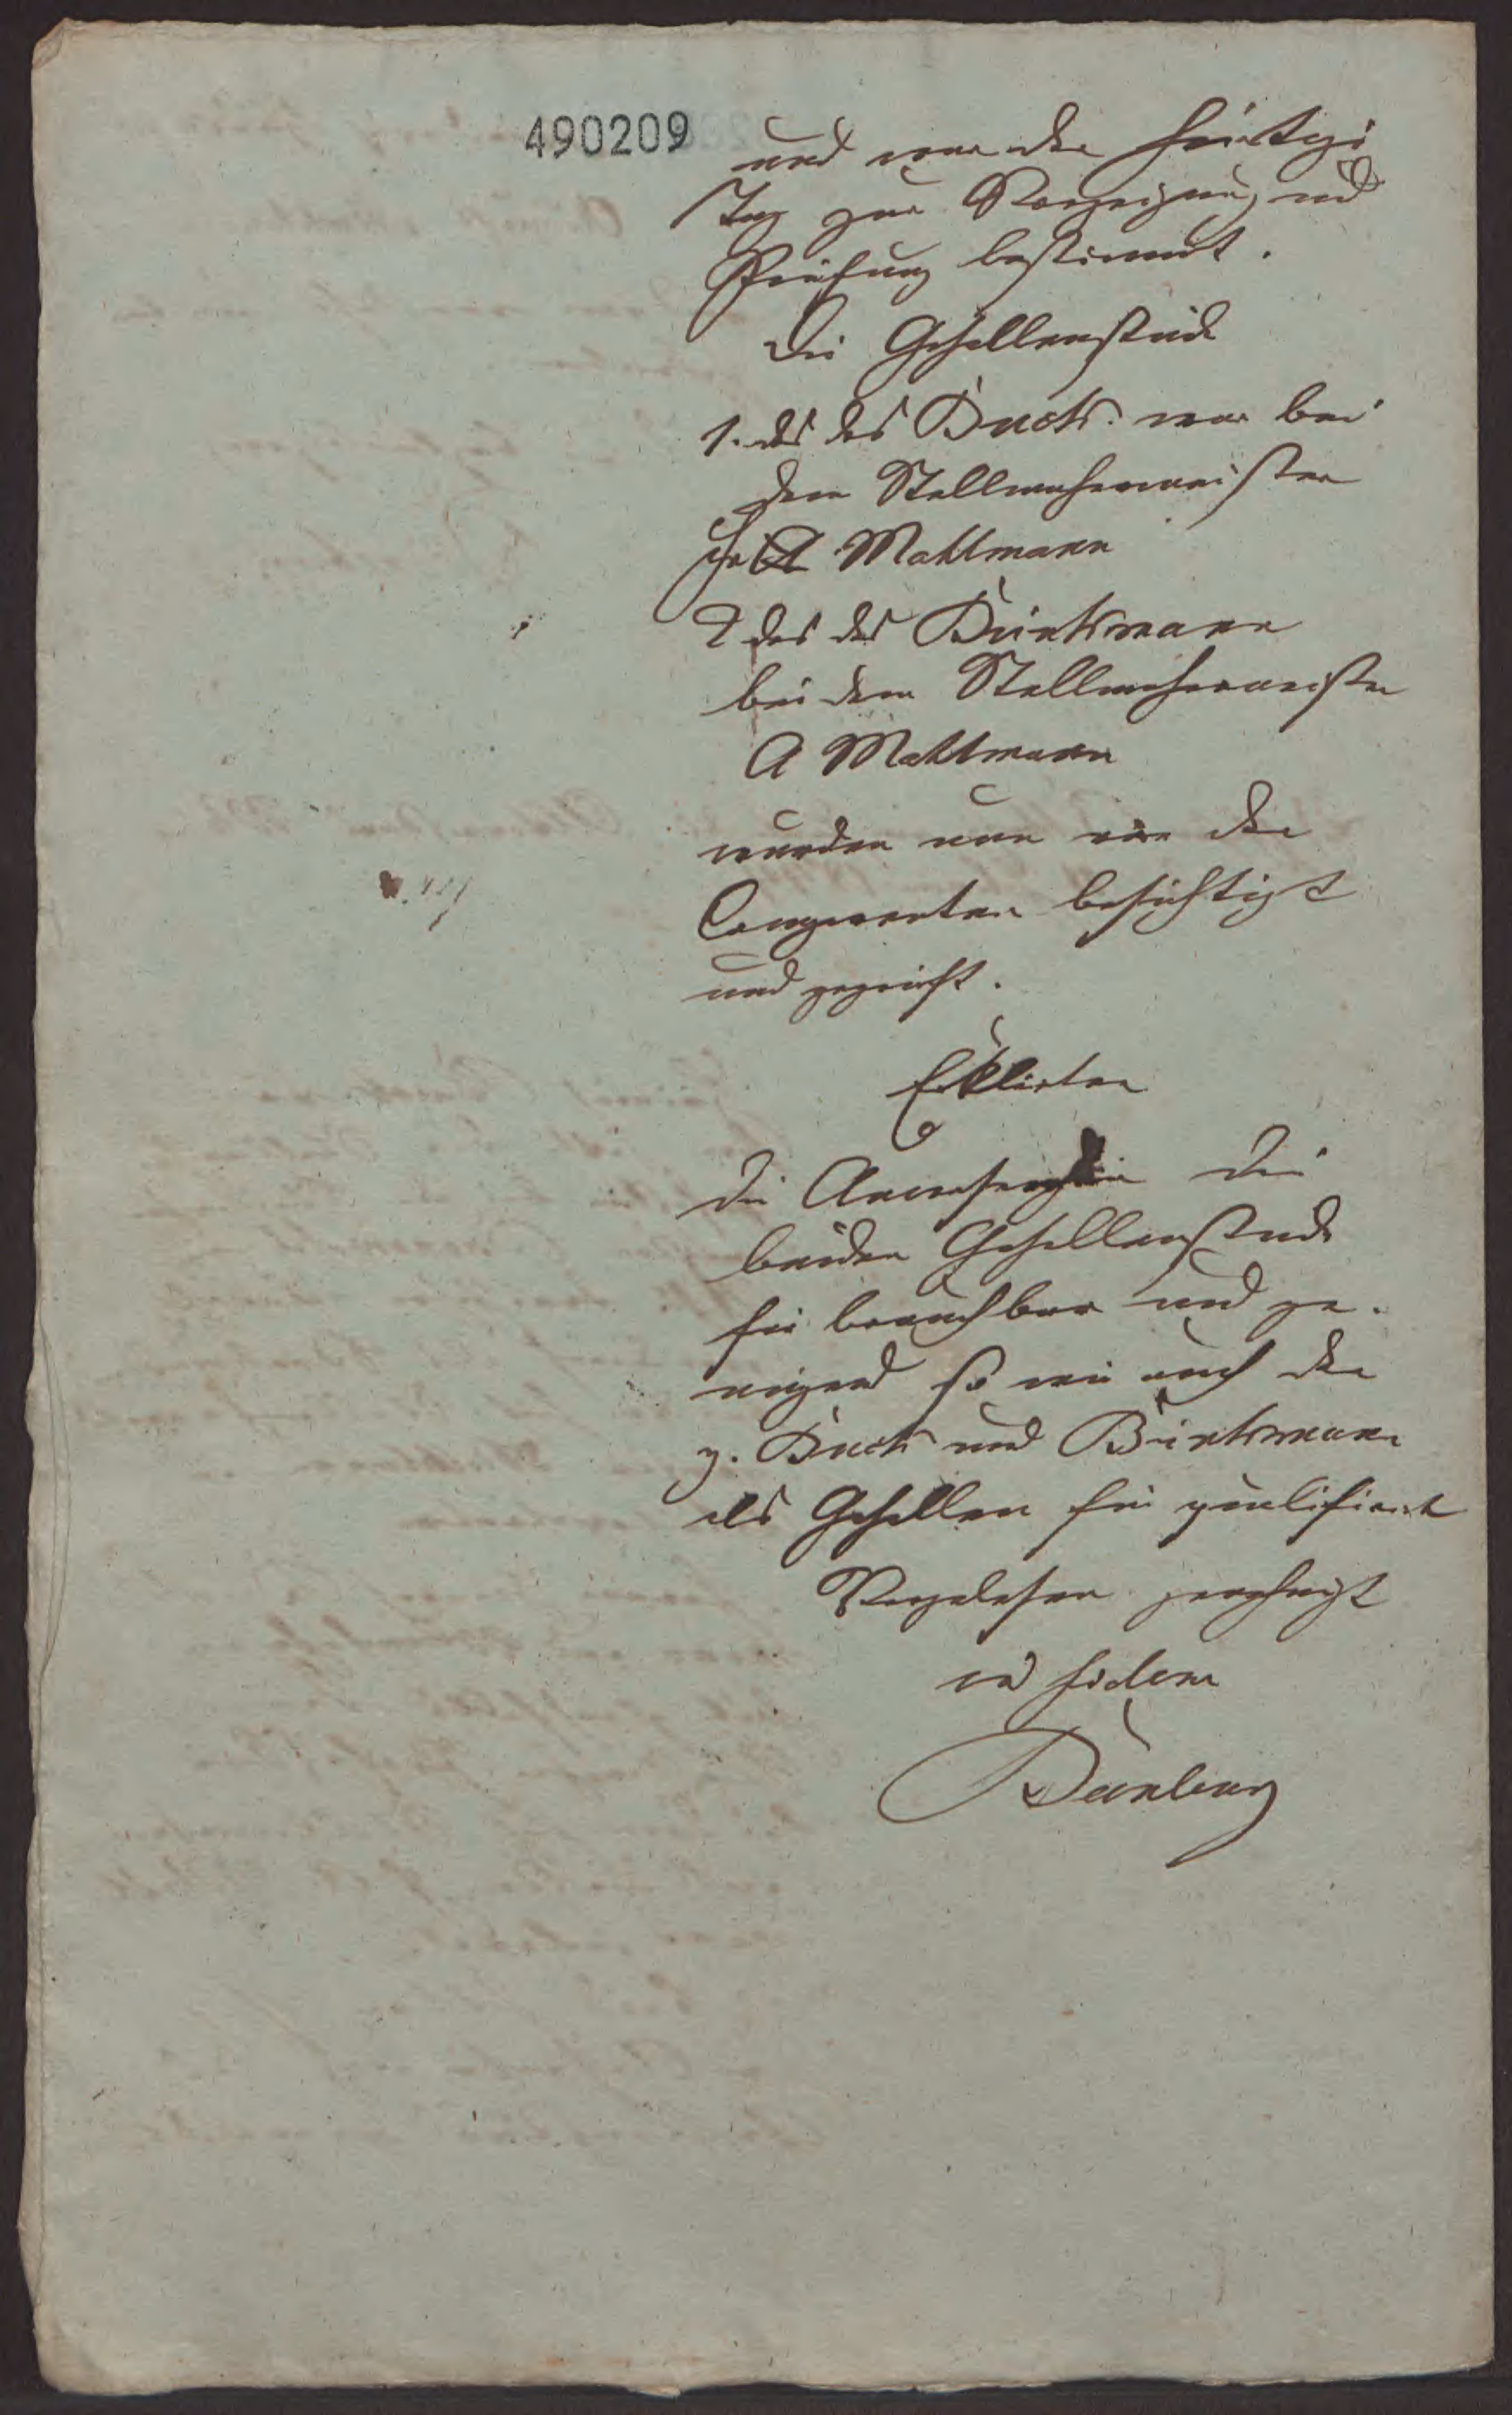 490209
und war der heutige
Tag zur Vorzeigung und
Prüfung bestimmt.
Die Gesellenstücke
1. das des Buck. war bei
dem Stellmachermeister
Mattmann
2 das des Brinkmann
bei dem Stellmachermeister
A Mattmann
wurden nun von den
Comparenten besichtigt
und geprüft.
Erklärten
die Anwesenden die
beiden Gesellenstücke
für brauchbar und ge-
nügend so wie auch den
p. Buck und Brinkmann
als Gesellen für qualificirt
Vorgelesen genehmigt
in fidem